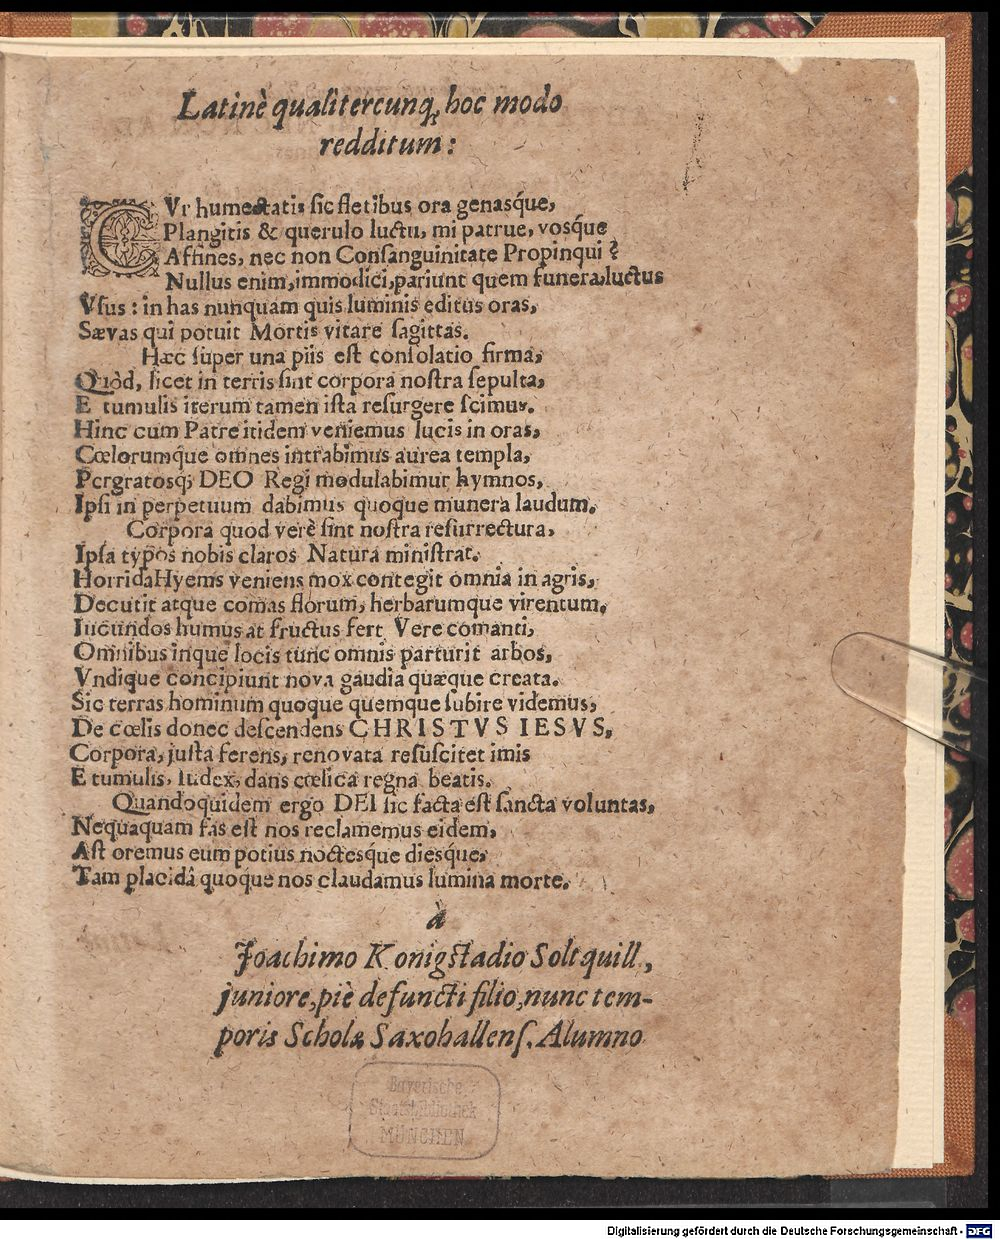 Latinè qualitercunq; hoc modo
redditum:
CVr humectatis ſic fletibus ora genasq́ue,
Plangitis & querulo luctu, mi patrue, vosq́ue
Affines, nec non Conſanguinitate Propinqui?
Nullus enim, immodici, pariunt quem funera, luctus
Vſus: in has nunquam quis luminis editus oras,
Sævas qui potuit Mortis vitare ſagittas.
Hæc ſuper una piis eſt conſolatio firma,
Quòd, licet in terris ſint corpora noſtra ſepulta,
E tumulis iterum tamen iſta reſurgere ſcimus.
Hinc cum Patre itidem veniemus lucis in oras,
Cœlorumq́ue omnes intrabimus aurea templa,
Pergratosq; DEO Regi modulabimur hymnos,
Ipſi in perpetuum dabimus quoque munera laudum.
Corpora quod verè ſint noſtra reſurrectura,
Ipſa typos nobis claros Natura miniſtrat.
Horrida Hyems veniens mox contegit omnia in agris,
Decutit atque comas florum, herbarumque virentum,
Iucundos humus at fructus fert Vere comanti,
Omnibus inque locis tunc omnis parturit arbos,
Vndique concipiunt nova gaudia quæque creata.
Sic terras hominum quoque quemque ſubire videmus,
De cœlis donec deſcendens CHRISTVS IESVS,
Corpora, juſta ferens, renovata reſuſcitet imis
E tumulis, Iudex, dans cœlica regna beatis.
Quandoquidem ergo DEI ſic facta eſt ſancta voluntas,
Nequaquam fas eſt nos reclamemus eidem,
Aſt oremus eum potius noctesq́ue diesq́ue,
Tam placidâ quoque nos claudamus lumina morte.
à
Joachimo Konigſtadio Soltquill,
juniore, piè defuncti filio, nunc tem-
poris Scholæ Saxohallenſ. Alumno
Bayerische
Staatsbibliothek
MÜNCHEN
Digitalisierung gefördert durch die Deutsche Forschungsgemeinschaft - DFG